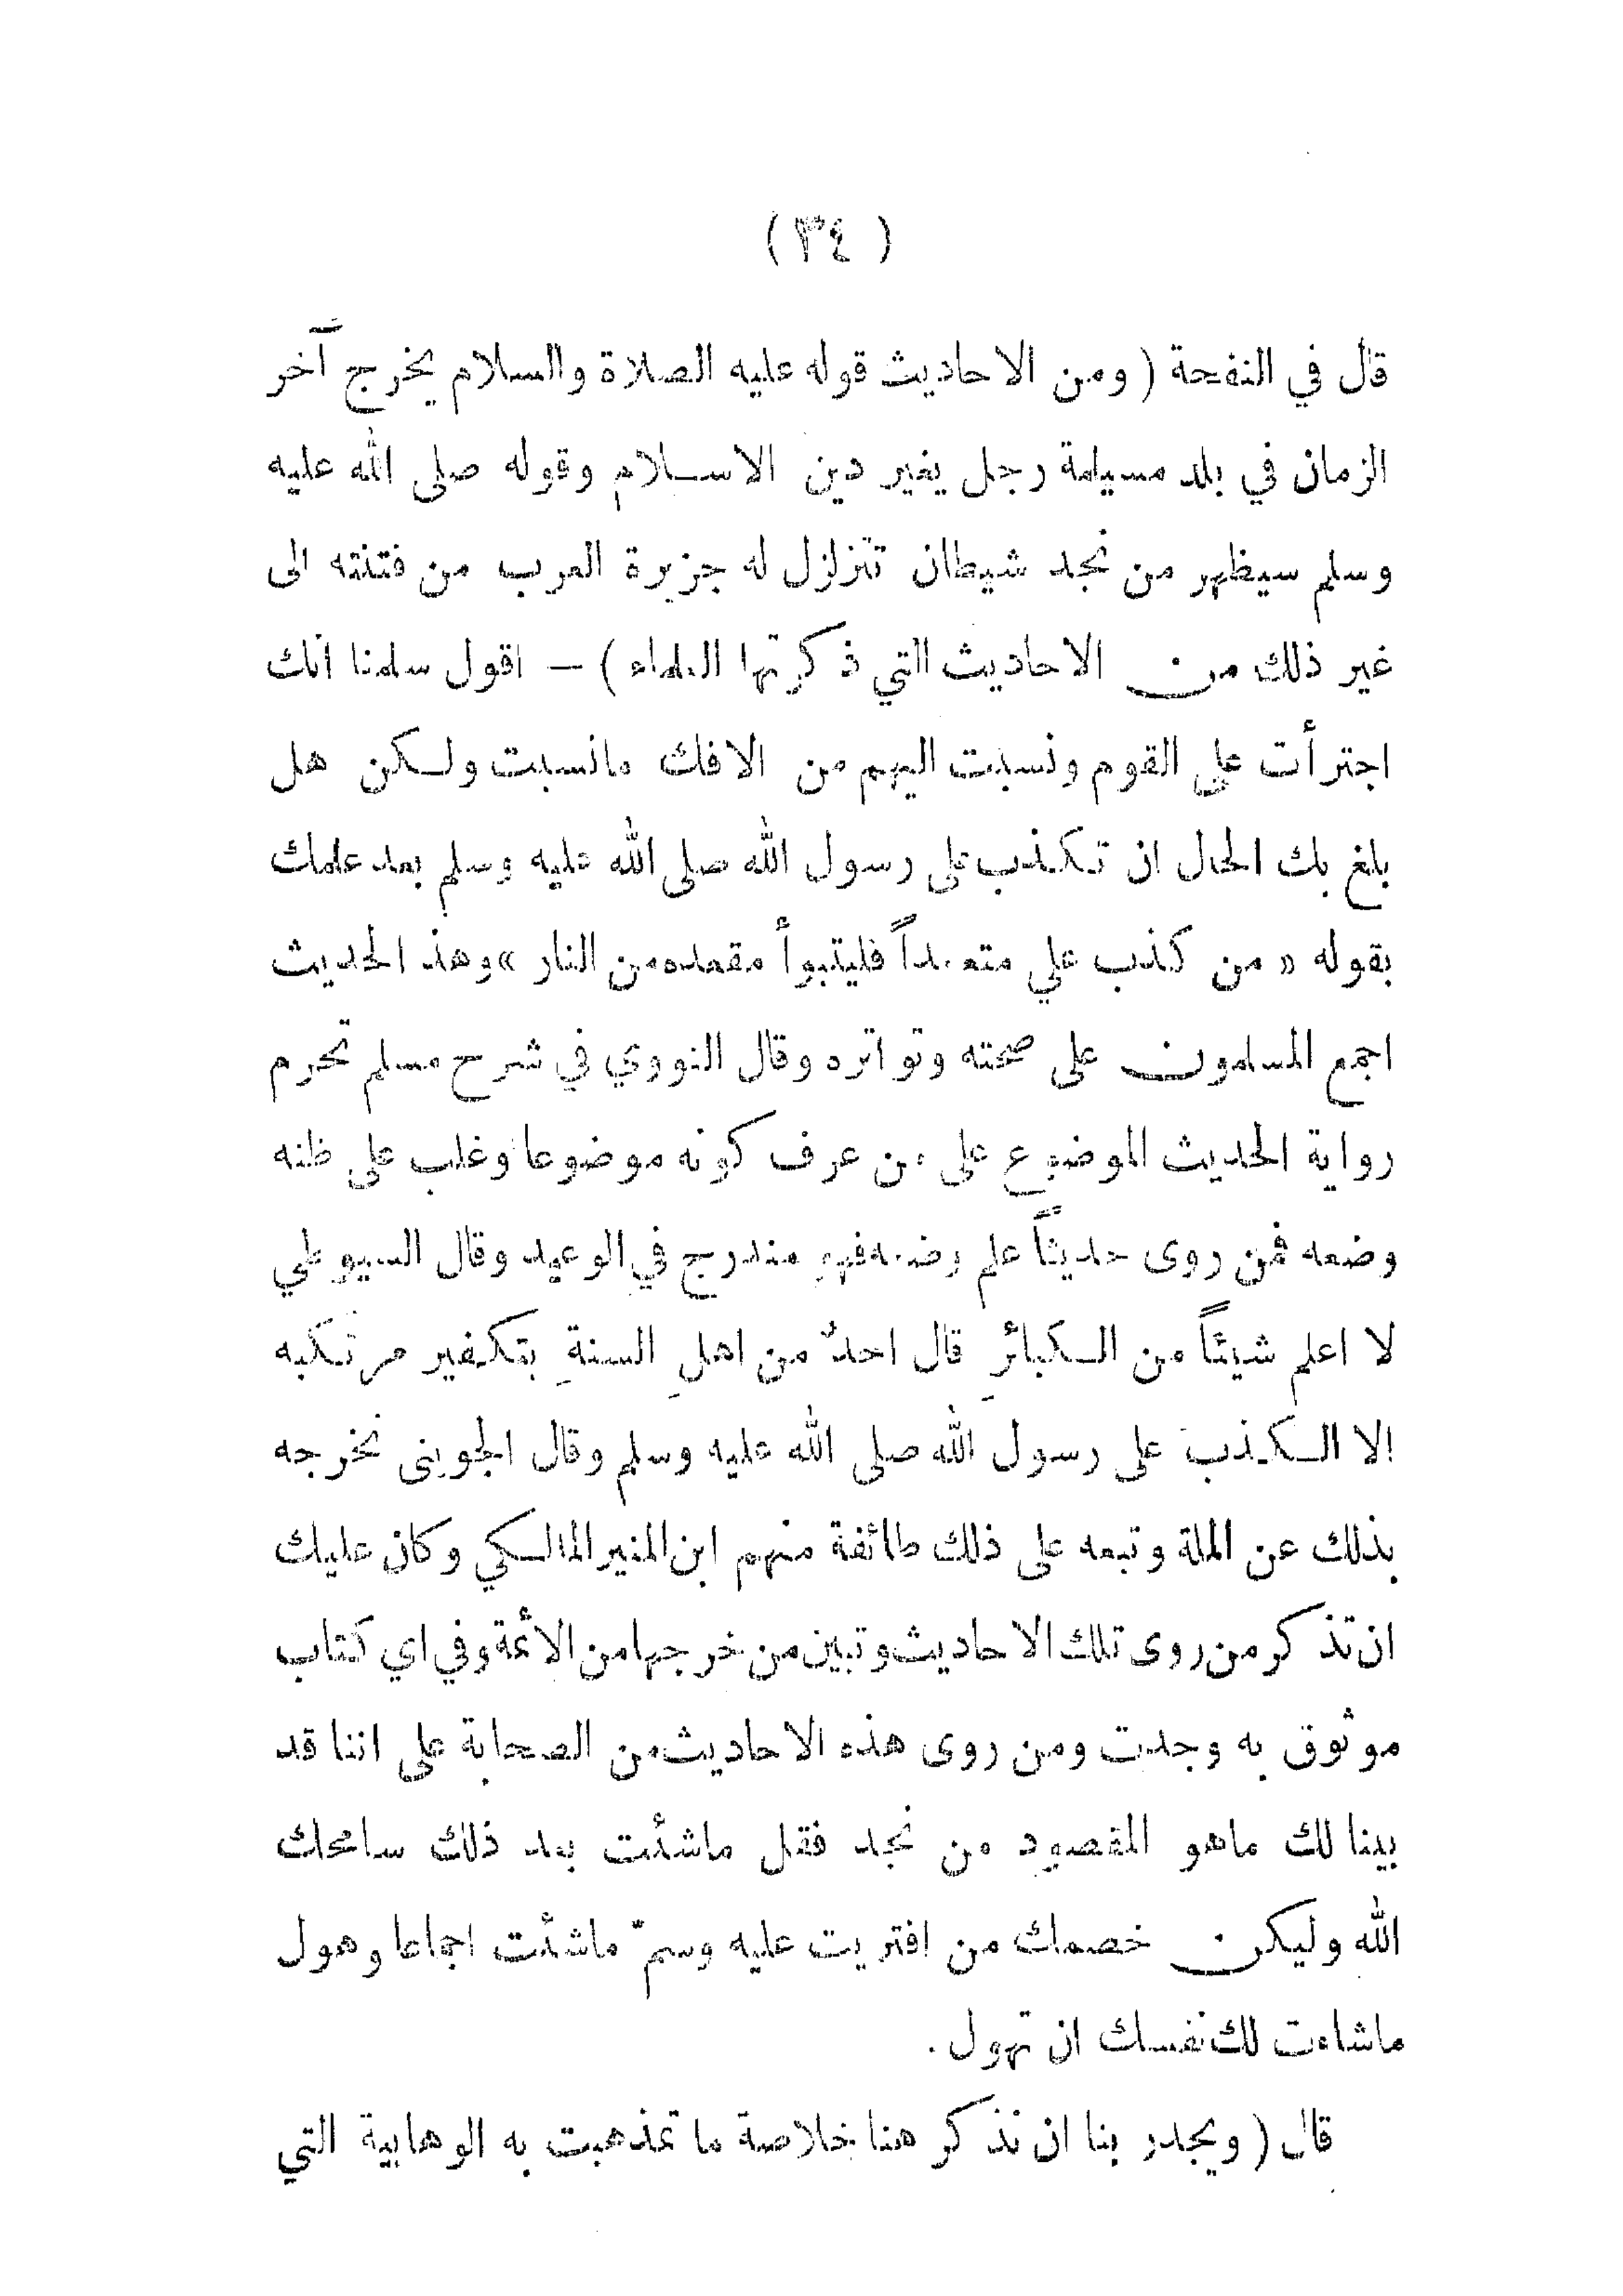 ( ٣٤ )
قال في النفحة ( ومن الاحاديث قوله عليه الصلاة والسلام يخرج آخر
الزمان في بلد مسيلمة رجل يغير دين الاسلام وقوله صلى الله عليه
وسلم سيظهر من نجد شيطان تتزلزل له جزيرة العرب من فتنته الى
غير ذلك من الاحاديث التي ذكرتها العلماء ) – اقول سلمنا انك
اجترأت على القوم ونسبت اليهم من الافك مانسبت ولكن هل
بلغ بك الحال ان تكذب على رسول الله صلى الله عليه وسلم بعد علمك
بقوله « من كذب علي متعمداً فليتبوأ مقعده من النار » وهذ الحديث
اجمع المسلمون على صحته وتواتره وقال النووي في شرح مسلم تحرم
رواية الحديث الموضوع على من عرف كونه موضوعا وغلب على ظنه
وضعه فمن روى حديثاً علم وضعه فهو مندرج في الوعيد وقال السيوطي
لا اعلم شيئاً من الكبائرِ قال احدٌ من اهلِ السنةِ بتكفير مرتكبه
الا الكذب على رسول الله صلى الله عليه وسلم وقال الجويني نخرجه
بذلك عن الملة وتبعه على ذلك طائفة منهم ابن المنير المالكي وكان عليك
ان تذكر من روى تلك الاحاديث وتبين من خرجها من الأئمة وفي اي كتاب
موثوق به وجدت ومن روى هذه الاحاديث من الصحابة على اننا قد
بينا لك ماهو المقصود من نجد فقل ماشئت بعد ذلك سامحك
الله وليكن خصمك من افتريت عليه وسمّ ماشئت اجماعا وهول
ماشاءت لك نفسك ان تهول .
قال ( ويجدر بنا ان نذكر هنا خلاصة ما تمذهبت به الوهابية التي